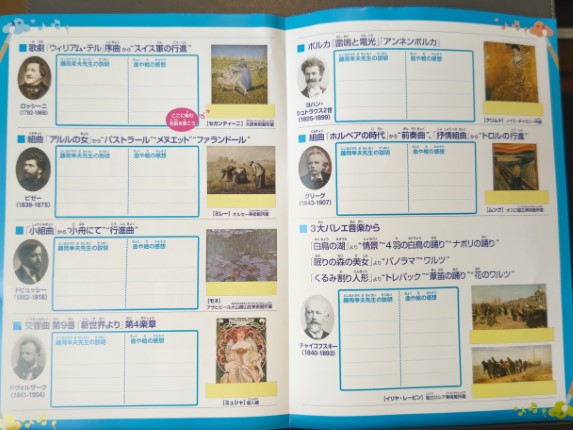 歌劇「ウィリアム・テル」序曲から"スイス軍の行進"
藤岡幸夫先生の説明
曲や絵の感想
ロッシーニ
(1792-1868)
ここに絵の
名前を書こう
【セガンティーニ】
組曲「アルルの女」から"パストラール""メヌエット""ファランドール"
藤岡幸夫先生の説明
曲や絵の感想
ビゼー
(1838-1875)
【ミレー】オルセー美術館所蔵
「小組曲」から"小舟にて""行進曲"
藤岡幸夫先生の説明
曲や絵の感想
ドビュッシー
(1862-1918)
【モネ】
アサヒビール大山崎山荘美術館所蔵
交響曲 第9番「新世界より」第4楽章
藤岡幸夫先生の説明
曲や絵の感想
ドヴォルザーク
(1841-1904)
【ミュシャ】個人蔵
ポルカ「雷鳴と電光」「アンネンポルカ」
藤岡幸夫先生の説明
曲や絵の感想
ヨハン・
シュトラウス2世
(1825-1899)
【クリムト】
組曲「ホルベアの時代」から"前奏曲"、「抒情組曲」から"トロルの行進"
藤岡幸夫先生の説明
曲や絵の感想
グリーグ
(1843-1907)
【ムンク】オスロ国立美術館所蔵
3大バレエ音楽から
「白鳥の湖」より"情景""4羽の白鳥の踊り""ナポリの踊り"
「眠りの森の美女」より"パノラマ""ワルツ"
「くるみ割り人形」より"トレパック""葦笛の踊り""花のワルツ"
藤岡幸夫先生の説明
曲や絵の感想
チャイコフスキー
(1840-1893)
【イリヤ・レーピン】国立ロシア美術館所蔵